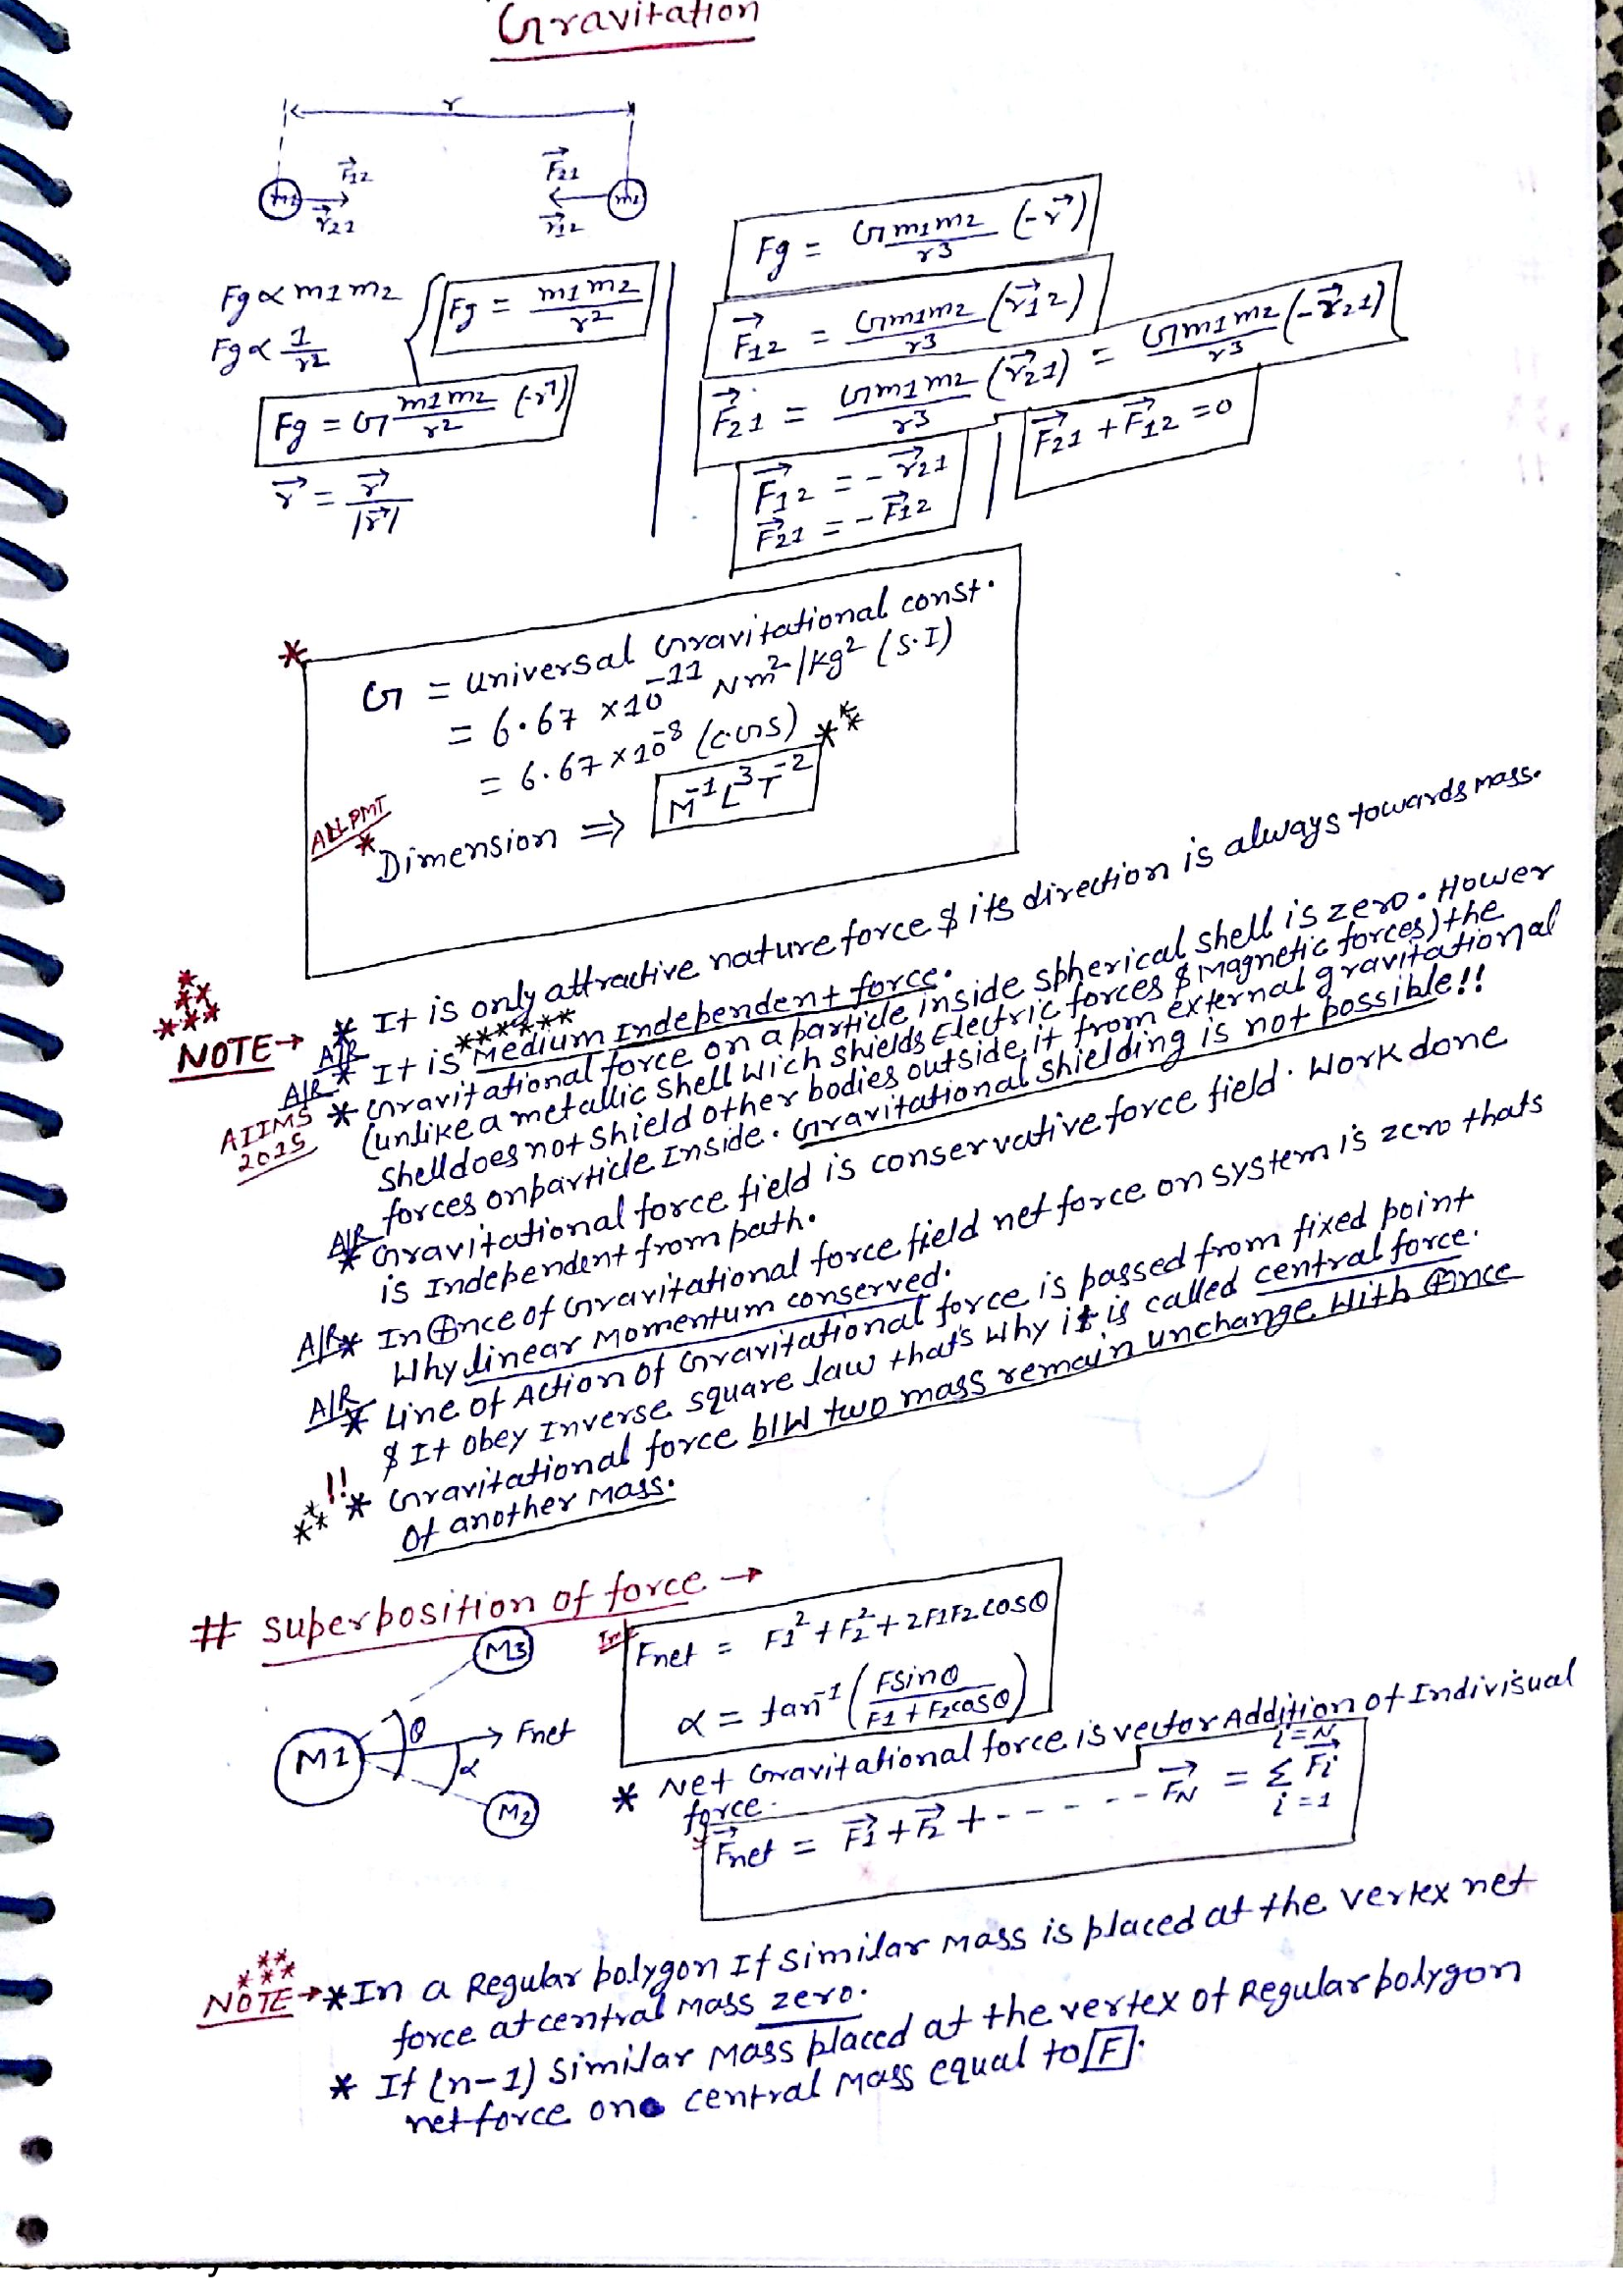 Gravitation
r
F⃗12
F⃗21
m1
m2
r⃗21
r⃗12
Fg ∝ m1m2
Fg ∝ 1/r²
Fg = m1m2/r²
Fg = G m1m2/r² (-r⃗)
r⃗ = r⃗/|r⃗|
Fg = Gm1m2/r3 (-r⃗)
F⃗12 = Gm1m2/r3 (r⃗12)
F⃗21 = Gm1m2/r3 (r⃗21) = Gm1m2/r3 (-r⃗21)
F⃗12 = - r⃗21
F⃗21 = - F⃗12
F⃗21 + F⃗12 = 0
* G = universal Gravitational const.
= 6.67 x10⁻¹¹ Nm²/kg² (S.I)
= 6.67 x10⁻⁸ (CGS) ***
AIIPMT
* Dimension ⇒ M⁻¹L³T⁻²
NOTE → * It is only attractive nature force & its direction is always towards mass.
******
A/R * It is Medium Independent force.
A/R * Gravitational force on a particle inside spherical shell is zero. Hower
AIIMS 2025
(unlike a metallic shell wich shields Electric forces & Magnetic forces) the
shell does not shield other bodies outside it from external gravitational
forces on particle Inside. Gravitational shielding is not possible!!
A/R * Gravitational force field is conservative force field. Work done
is Independent from path.
A/R * In ⊕nce of Gravitational force field net force on system is zero thats
Why linear Momentum conserved.
A/R * Line of Action of Gravitational force is passed from fixed point
& It obey Inverse square law that's Why it is called central force.
!! * Gravitational force b/W two mass remain unchange With ⊕nce
Of another Mass.
# superposition of force →
M3
M1
M2
θ
α
Fnet
Imp
Fnet = F1² + F2² + 2F1F2 cosθ
α = tan⁻¹ (Fsinθ/F1 + F2cosθ)
* Net Gravitational force is vector Addition of Indivisual
force.
F⃗net = F⃗1 + F⃗2 + - - - - - - F⃗N = Σ F⃗i
i=N
i=1
NOTE → * In a Regular polygon If similar Mass is placed at the vertex net
force at central Mass zero.
* If (n-1) Similar Mass placed at the vertex of Regular polygon
net force on central Mass equal to F.